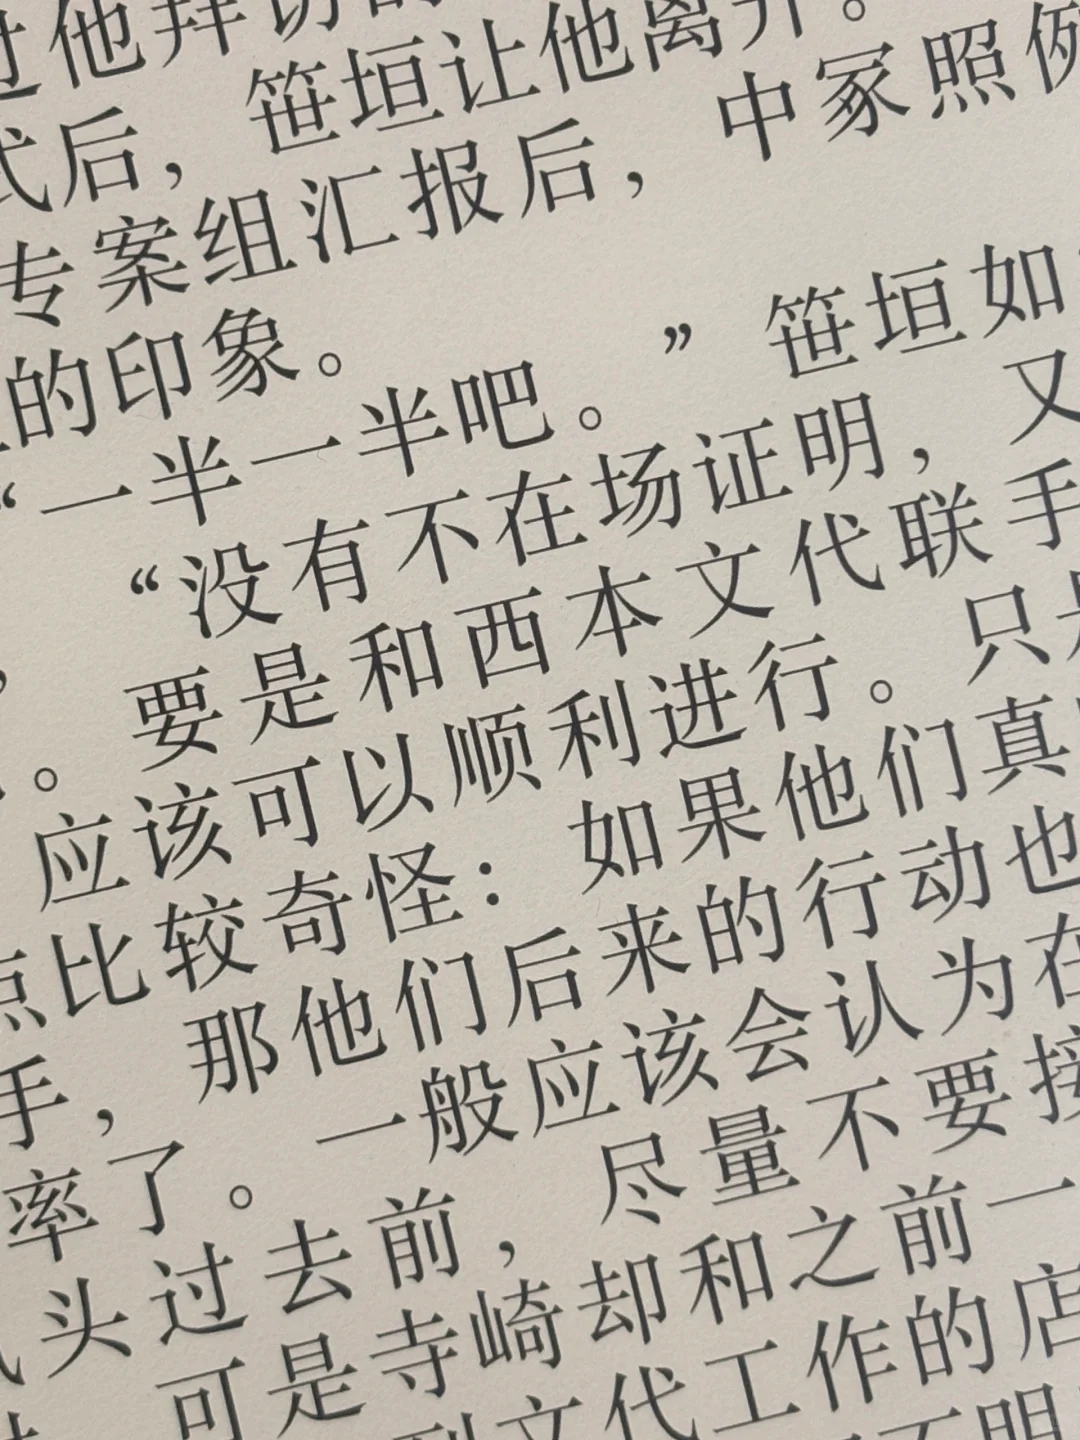 过他拜访的
式后，笹垣让他离开。
专案组汇报后，中冢照例
的印象。
“一半一半吧。”笹垣如
，“没有不在场证明，又
。要是和西本文代联手
应该可以顺利进行。只是
点比较奇怪：如果他们真
手，那他们后来的行动也
率了。一般应该会认为在
头过去前，尽量不要接
可是寺崎却和之前一
到文代工作的店
不明